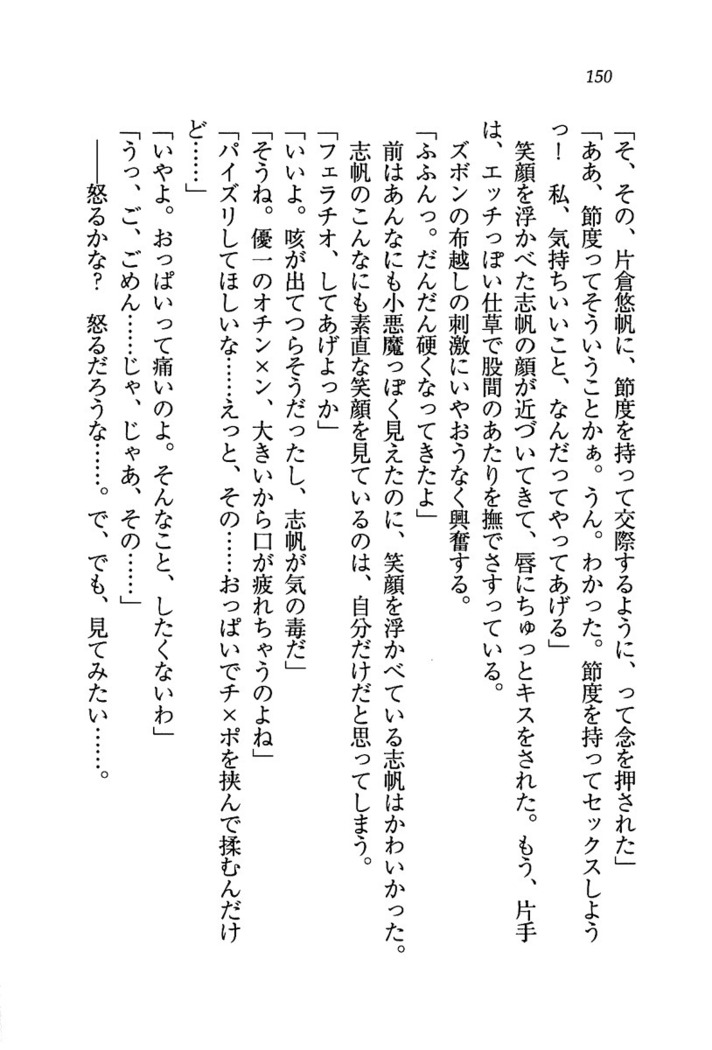 150
「そ、その、片倉悠帆に、節度を持って交際するように、って念を押された」
「ああ、節度ってそういうことかぁ。うん。わかった。節度を持ってセックスしよう
っ！　私、気持ちいいこと、なんだってやってあげる」
　笑顔を浮かべた志帆の顔が近づいてきて、唇にちゅっとキスをされた。もう、片手
は、エッチっぽい仕草で股間のあたりを撫でさすっている。
　ズボンの布越しの刺激にいやおうなく興奮する。
「ふふんっ。だんだん硬くなってきたよ」
　前はあんなにも小悪魔っぽく見えたのに、笑顔を浮かべている志帆はかわいかった。
　志帆のこんなにも素直な笑顔を見ているのは、自分だけだと思ってしまう。
「フェラチオ、してあげよっか」
「いいよ。咳が出てつらそうだったし、志帆が気の毒だ」
「そうね。優一のオチン×ン、大きいから口が疲れちゃうのよね」
「パイズリしてほしいな……えっと、その……おっぱいでチ×ポを挟んで揉むんだけ
ど……」
「いやよ。おっぱいって痛いのよ。そんなこと、したくないわ」
「うっ、ご、ごめん……じゃ、じゃあ、その……」
　――怒るかな？　怒るだろうな……。で、でも、見てみたい……。